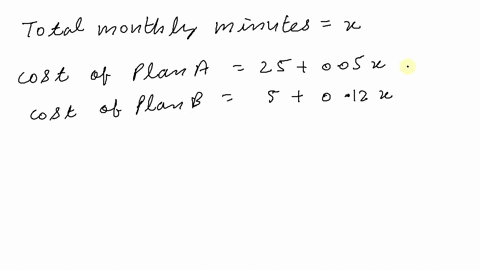 Total monthly minutes = x
cost of Plan A = 25 + 0.05x
cost of Plan B = 5 + 0.12x